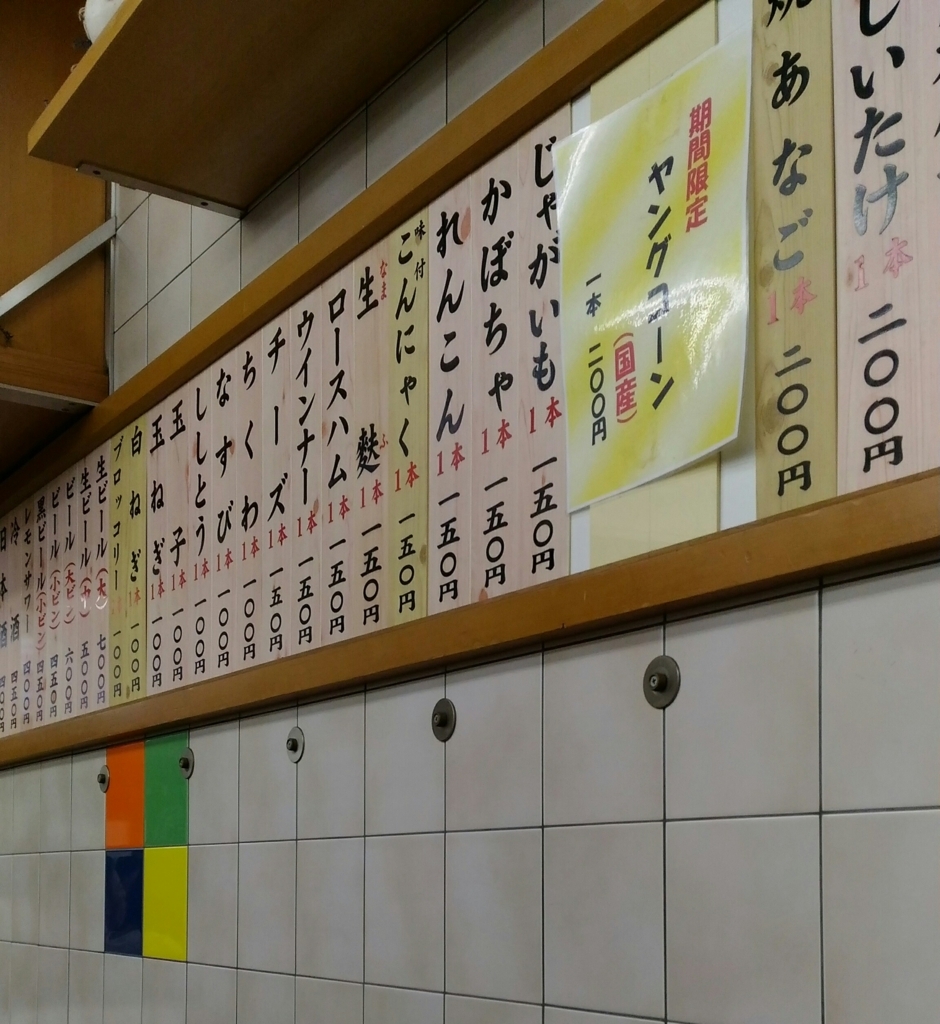 しいたけ 1本 二〇〇円
あなご 1本 二〇〇円
期間限定
ヤングコーン
（国産）
一本 二〇〇円
じゃがいも 1本 一五〇円
かぼちゃ 1本 一五〇円
れんこん 1本 一五〇円
味付こんにゃく 1本 一五〇円
生麩 1本 一五〇円
なま ふ
ロースハム 1本 一五〇円
ウインナー 1本 一五〇円
チーズ 1本 一五〇円
ちくわ 1本 一〇〇円
なすび 1本 一〇〇円
ししとう 1本 一〇〇円
玉子 1本 一〇〇円
玉ねぎ 1本 一〇〇円
白ねぎ 1本 一〇〇円
ブロッコリー 一〇〇円
生ビール(大) 七〇〇円
生ビール(中) 五〇〇円
ビール(大ビン) 六〇〇円
ビール(小ビン) 四五〇円
黒ビール(小ビン) 四五〇円
レモンサワー 四〇〇円
冷酒 四五〇円
日本酒 四〇〇円